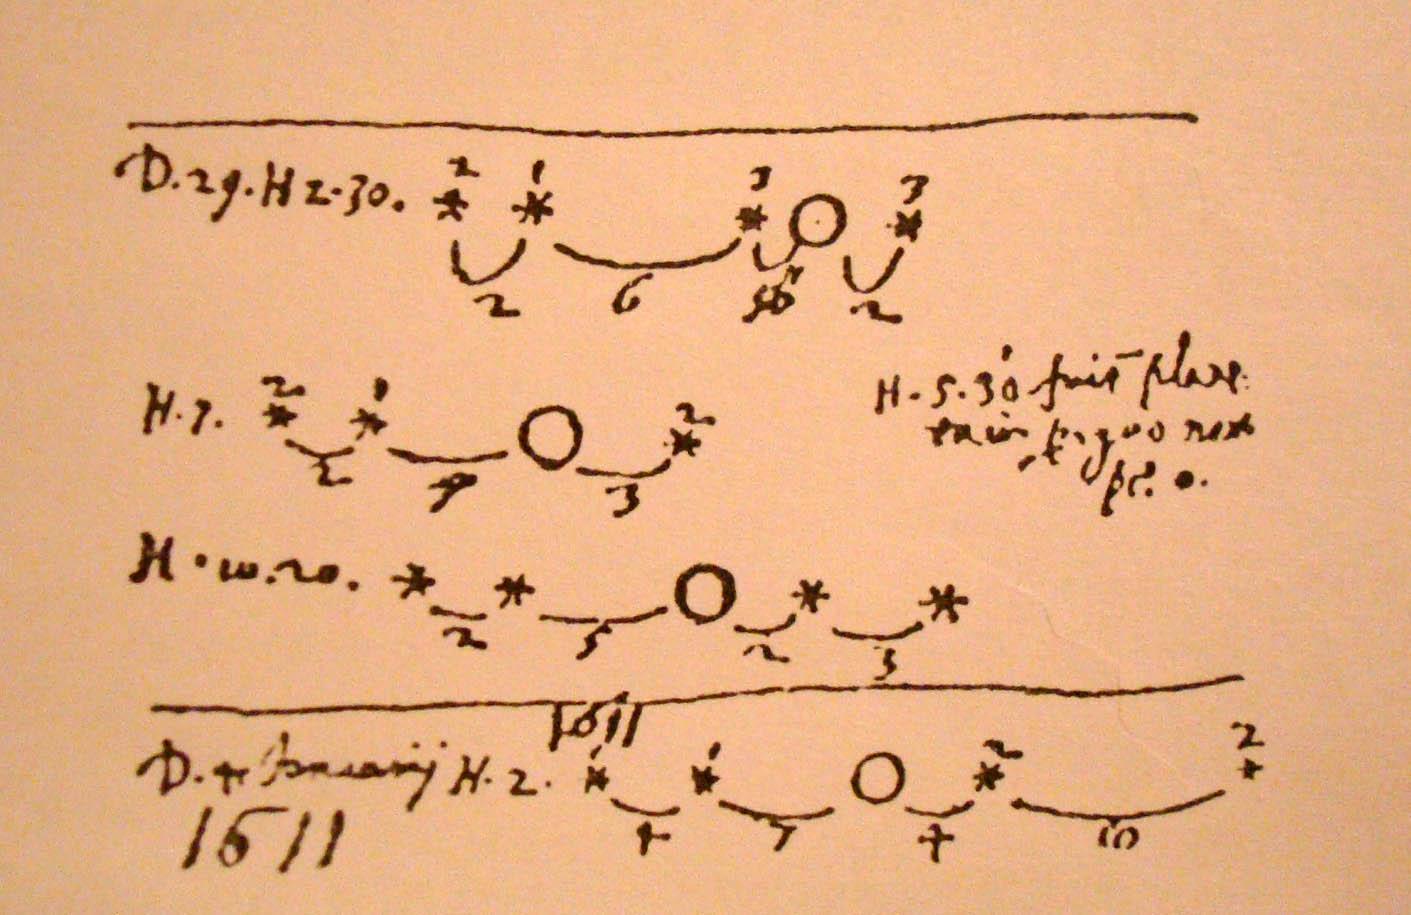 2 1 3 3
D. 29. H 2. 30. * * * ○ *
2 6 2
2 1 2
H. 7. * * ○ *
2 3
H. 5. 30
pc. o.
H. 10. 20. * * ○ * *
2 5 2 3
1611
1 1 2 2
D. 4 Januarij H. 2. * * ○ * *
4 7 4 10
1611